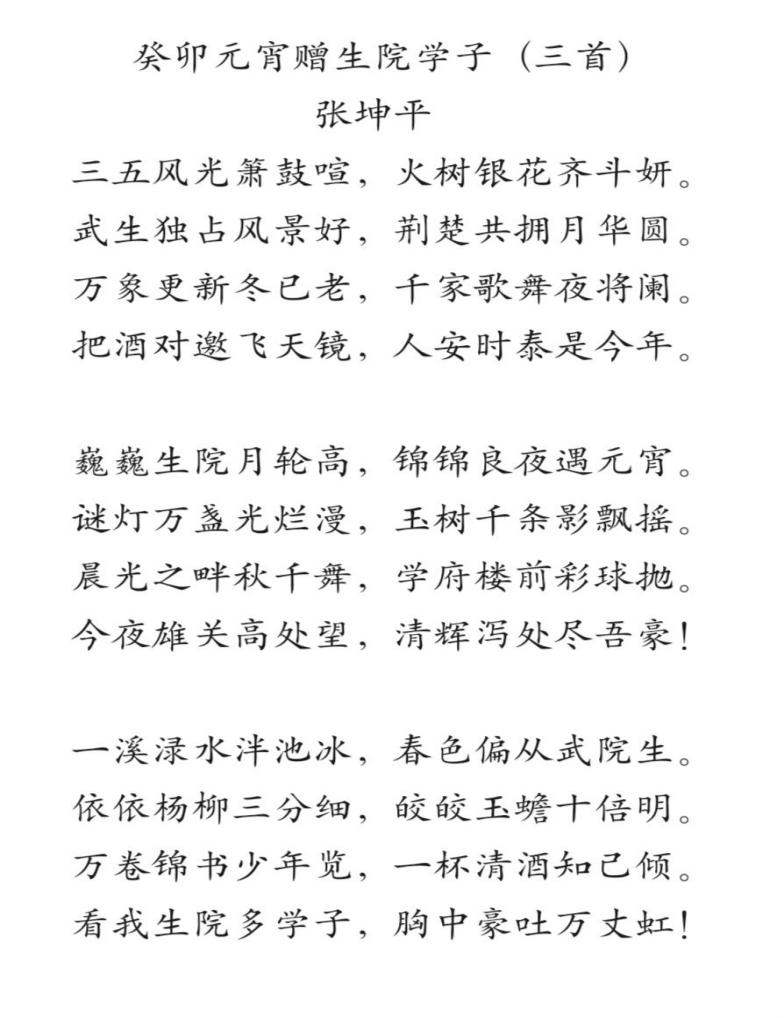 癸卯元宵赠生院学子（三首）
张坤平
三五风光箫鼓喧，火树银花齐斗妍。
武生独占风景好，荆楚共拥月华圆。
万象更新冬已老，千家歌舞夜将阑。
把酒对邀飞天镜，人安时泰是今年。
巍巍生院月轮高，锦锦良夜遇元宵。
谜灯万盏光烂漫，玉树千条影飘摇。
晨光之畔秋千舞，学府楼前彩球抛。
今夜雄关高处望，清辉泻处尽吾豪！
一溪渌水泮池冰，春色偏从武院生。
依依杨柳三分细，皎皎玉蟾十倍明。
万卷锦书少年览，一杯清酒知己倾。
看我生院多学子，胸中豪吐万丈虹！